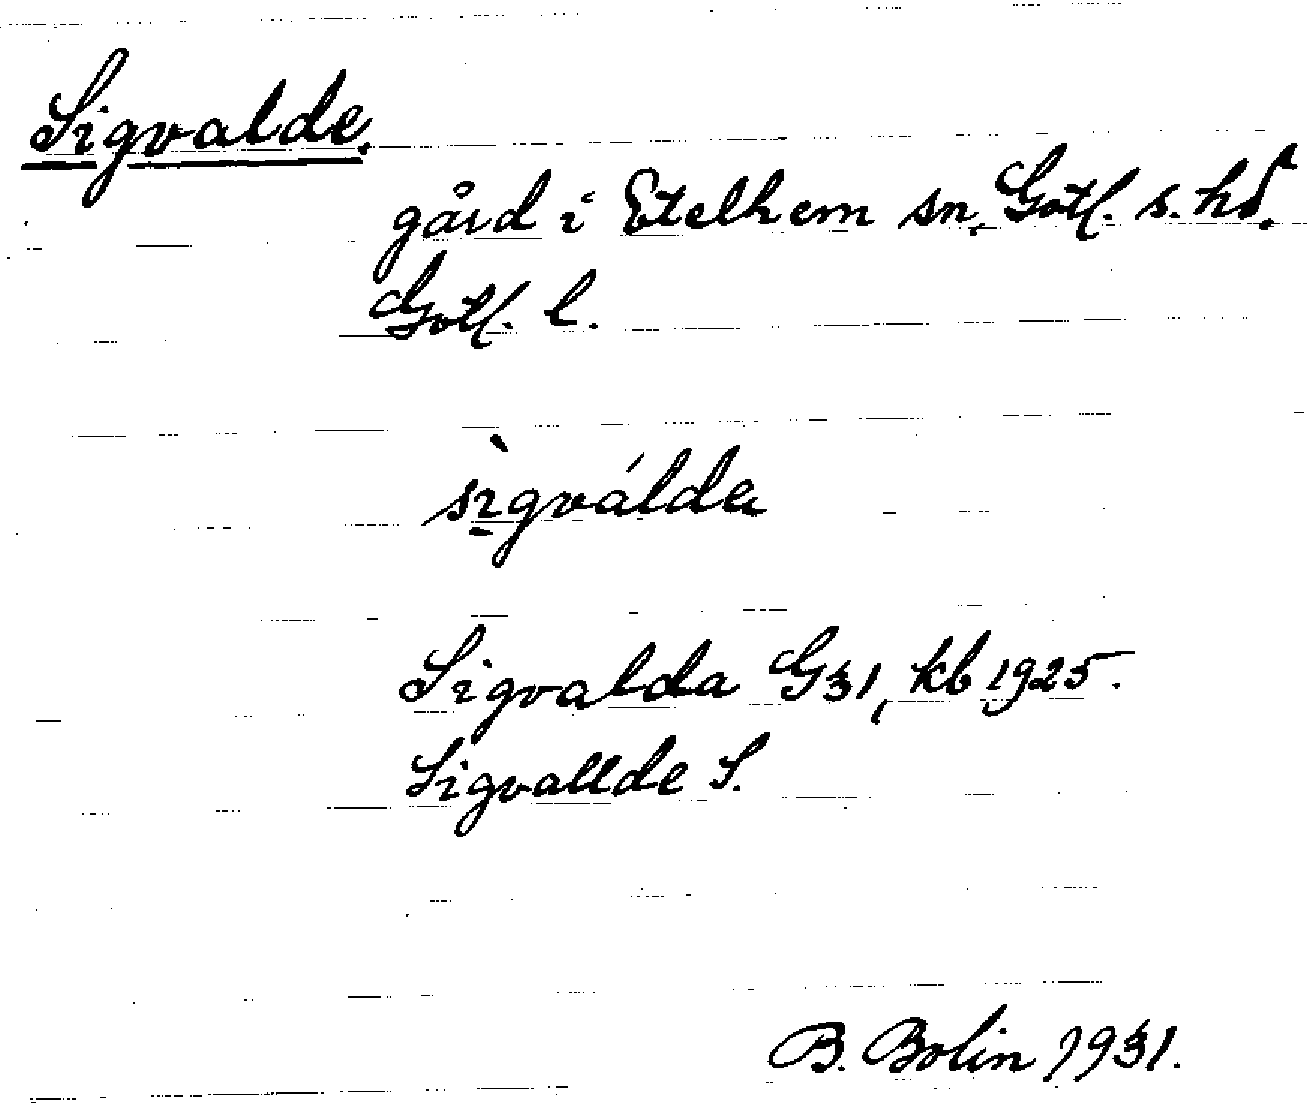 Sigvalde.
gård i Etelhem sn, Gotl. s. hd.
Gotl. l.
sìgválde
Sigvalda G31, kb 1925.
Sigvallde S.
B. Bolin 1931.